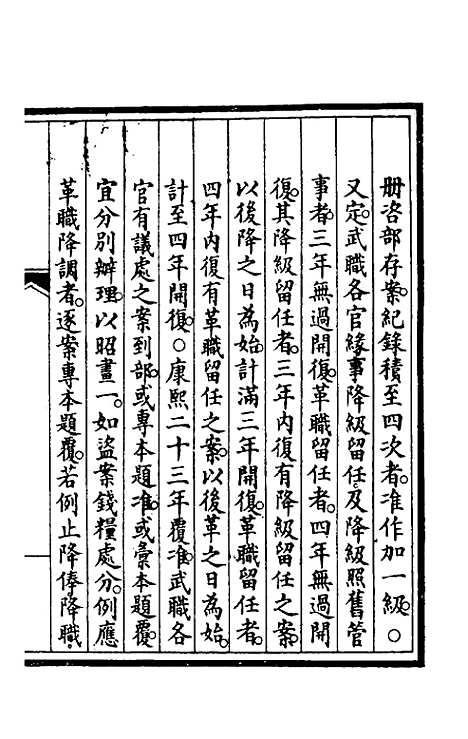 册咨部存案。紀錄積至四次者。准作加一級。○
又定。武職各官緣事降級留任。及降級照舊管
事者。三年無過開復。革職留任者。四年無過開
復。其降級留任者。三年內復有降級留任之案。
以後降之日為始。計滿三年開復。革職留任者。
四年內復有革職留任之案。以後革之日為始。
計至四年開復。○康熙二十三年覆准。武職各
官有議處之案到部。或專本題准。或彙本題覆。
宜分別辦理。以昭畫一。如盜案錢糧處分。例應
革職降調者。逐案專本題覆。若例止降俸降職。